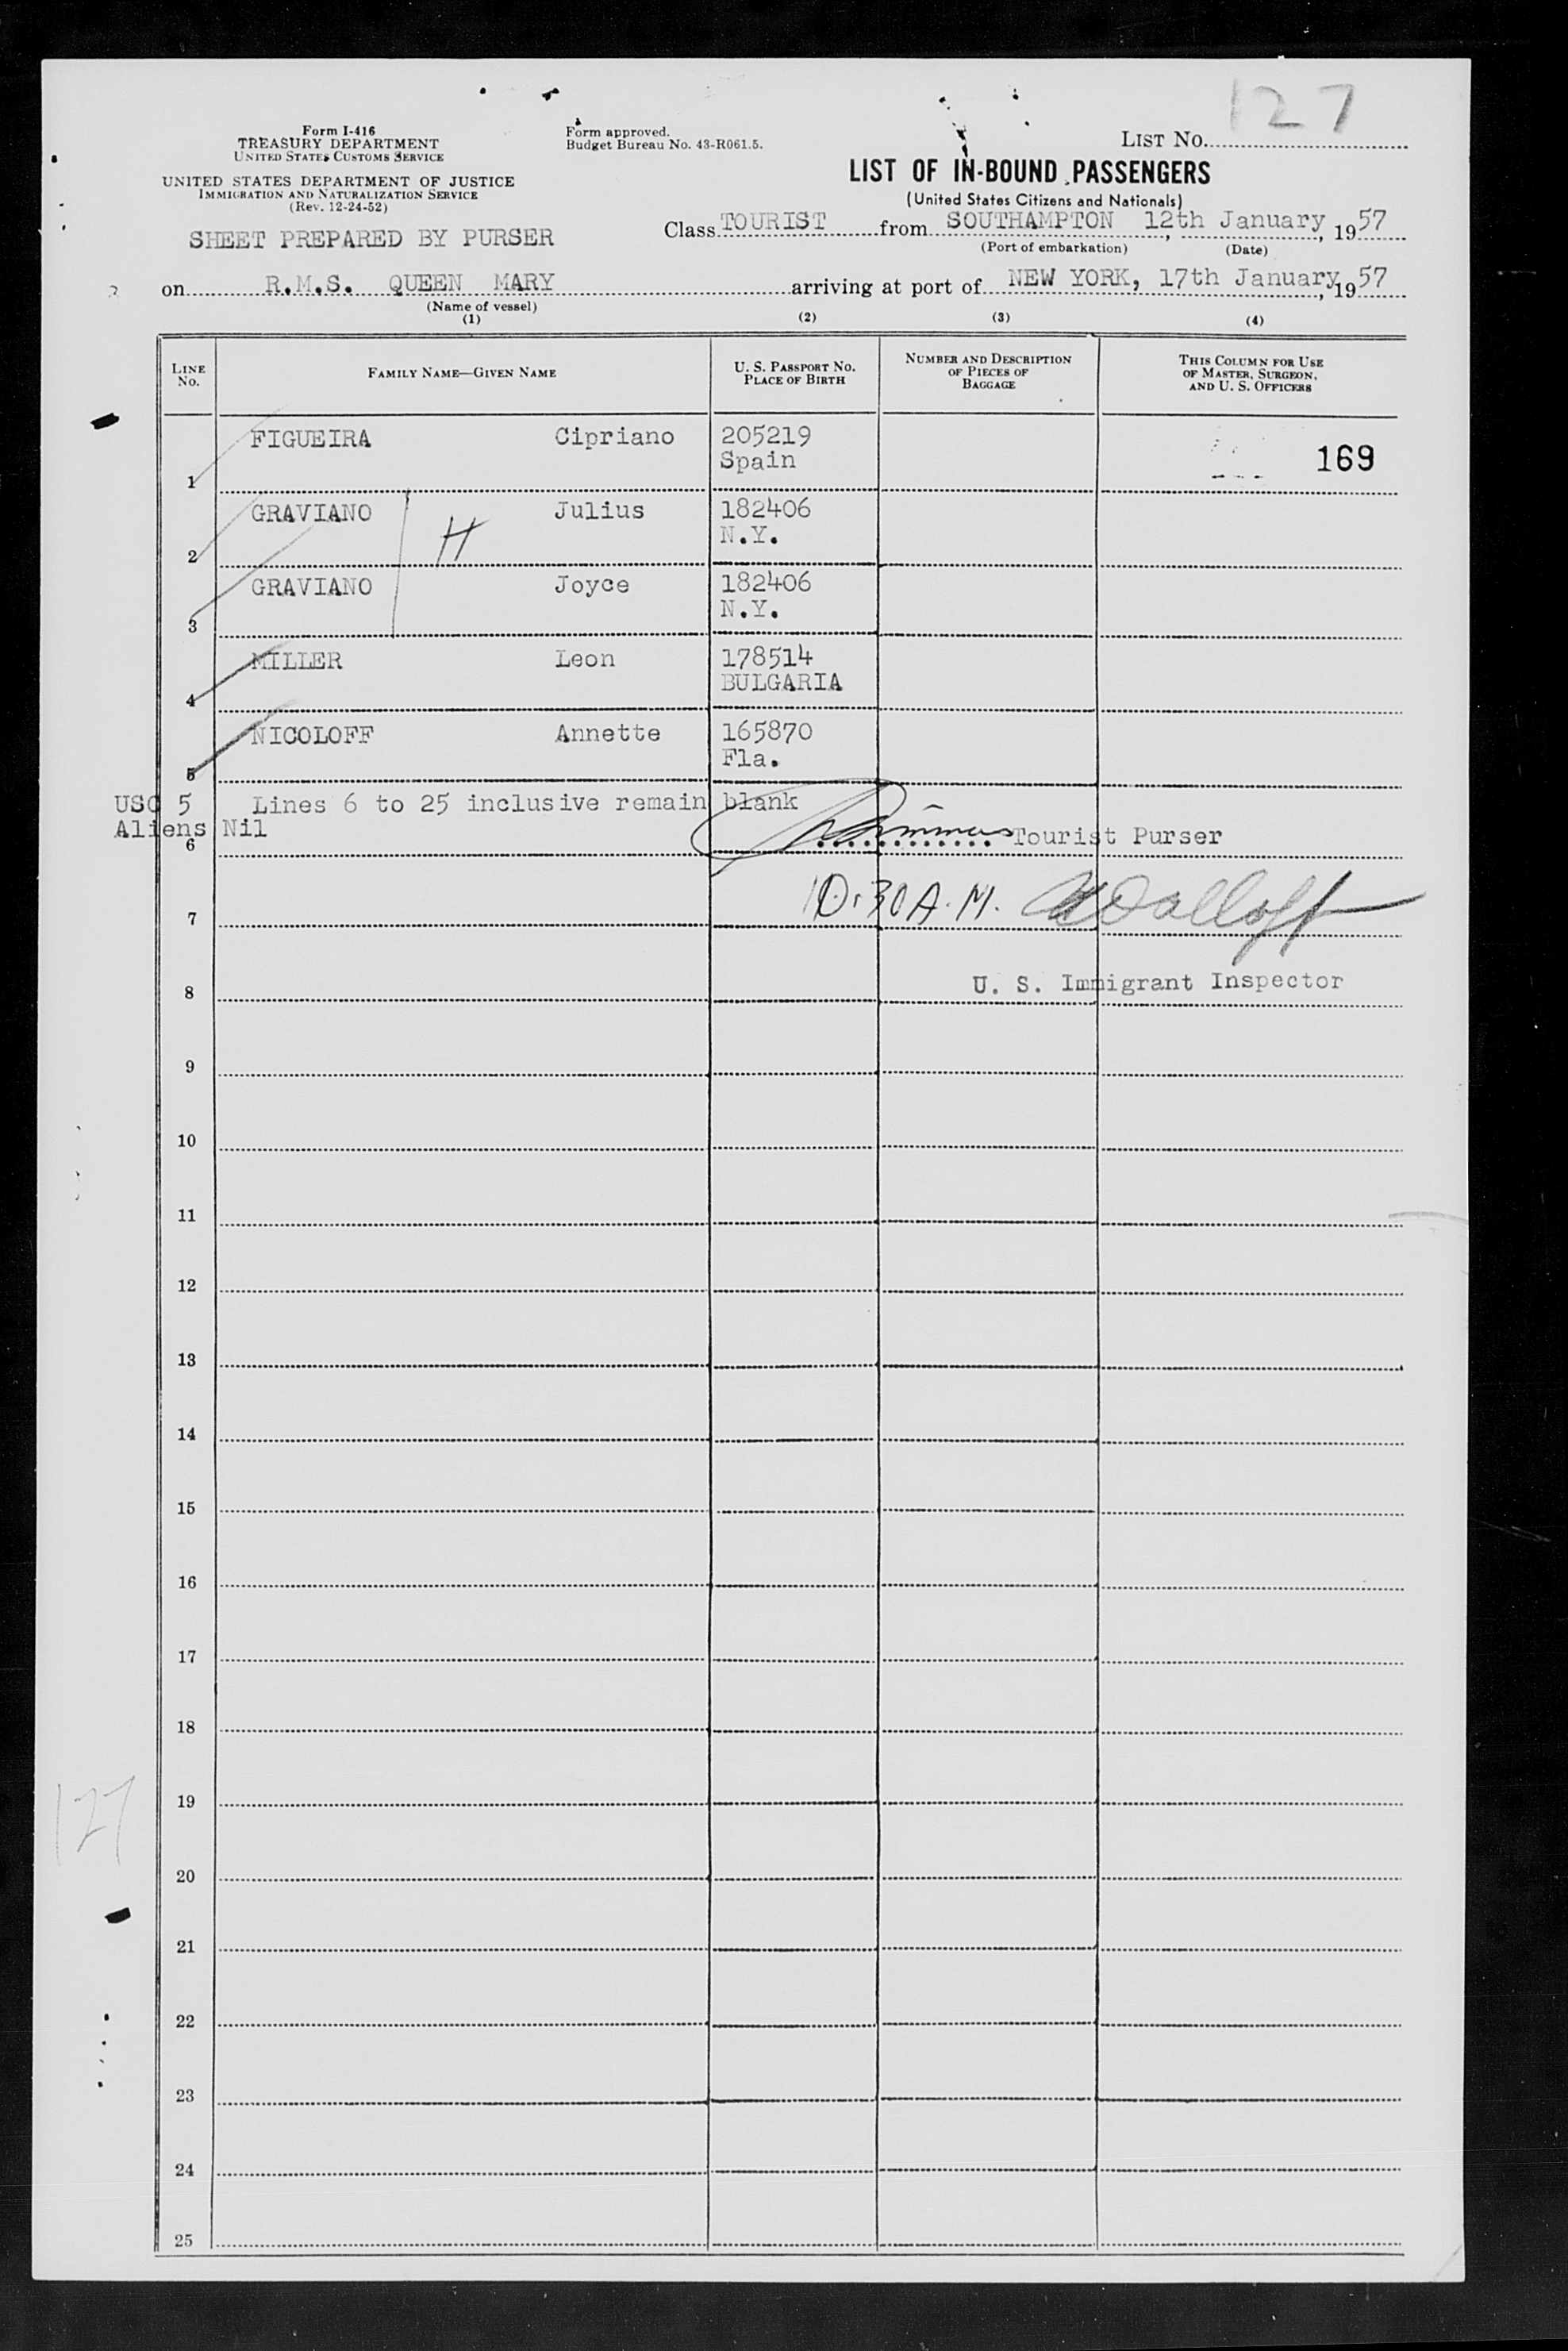 127
Form I-416
TREASURY DEPARTMENT
UNITED STATES CUSTOMS SERVICE
UNITED STATES DEPARTMENT OF JUSTICE
IMMIGRATION AND NATURALIZATION SERVICE
(Rev. 12-24-52)
Form approved.
Budget Bureau No. 43-R061.5.
LIST No.
LIST OF IN-BOUND PASSENGERS
(United States Citizens and Nationals)
SHEET PREPARED BY PURSER
Class TOURIST from SOUTHAMPTON 12th January, 1957
(Port of embarkation) (Date)
on R.M.S. QUEEN MARY arriving at port of NEW YORK, 17th January, 1957
(Name of vessel)
(1) (2) (3) (4)
LINE No. FAMILY NAME—GIVEN NAME U. S. PASSPORT No. PLACE OF BIRTH NUMBER AND DESCRIPTION OF PIECES OF BAGGAGE THIS COLUMN FOR USE OF MASTER, SURGEON, AND U. S. OFFICERS
1 FIGUEIRA Cipriano 205219 169
Spain
2 GRAVIANO H Julius 182406
N.Y.
3 GRAVIANO Joyce 182406
N.Y.
4 MILLER Leon 178514
BULGARIA
5 NICOLOFF Annette 165870
Fla.
USC 5 Lines 6 to 25 inclusive remain blank
Aliens Nil
6 Tourist Purser
7 10:30 A.M.
8 U. S. Immigrant Inspector
9
10
11
12
13
14
15
16
17
18
19
127
20
21
22
23
24
25